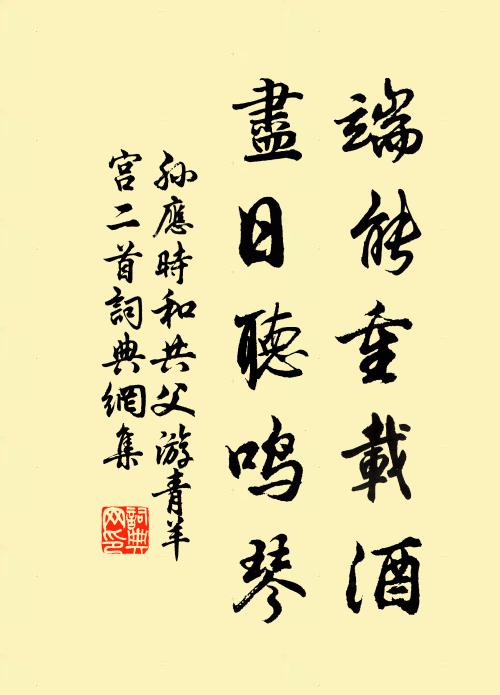 端能重載酒
盡日聽鳴琴
孫應時和共父游青羊
宫二首詞典網集
詞典
网印